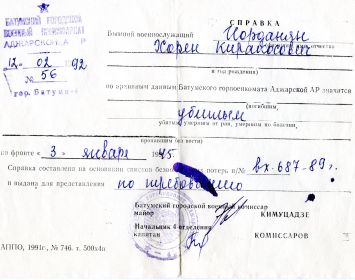 БАТУМСКИЙ ГОРОДСКОЙ
ВОЕННЫЙ КОМИССАРИАТ
АДЖАРСКОЙ А Р
12- 02 /92
№ 56
гор. Батуми
СПРАВКА
Бывший военнослужащий Иорданян
Хорен Киракосович
(и год рождения)
по архивным данным Батумского горвоенкомата Аджарской АР значится
(погибшим,
убитым
убитым, умершим от ран, умершим по болезни,
пропавшим без вести)
на фронте « 3 » января 1945
Справка составлена на основании списков безвозвратных потерь п/№ вх-687-89г.
и выдана для представления по требованию
Батумский городской военный комиссар
майор КИМУЦАДЗЕ
Начальник 4 отделения
капитан КОМИССАРОВ
АППО, 1991г., № 746. т. 500х4а